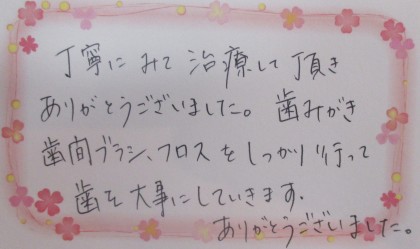 丁寧にみて治療して頂き
ありがとうございました。歯みがき
歯間ブラシ、フロスをしっかり行って
歯を大事にしていきます.
ありがとうございました。